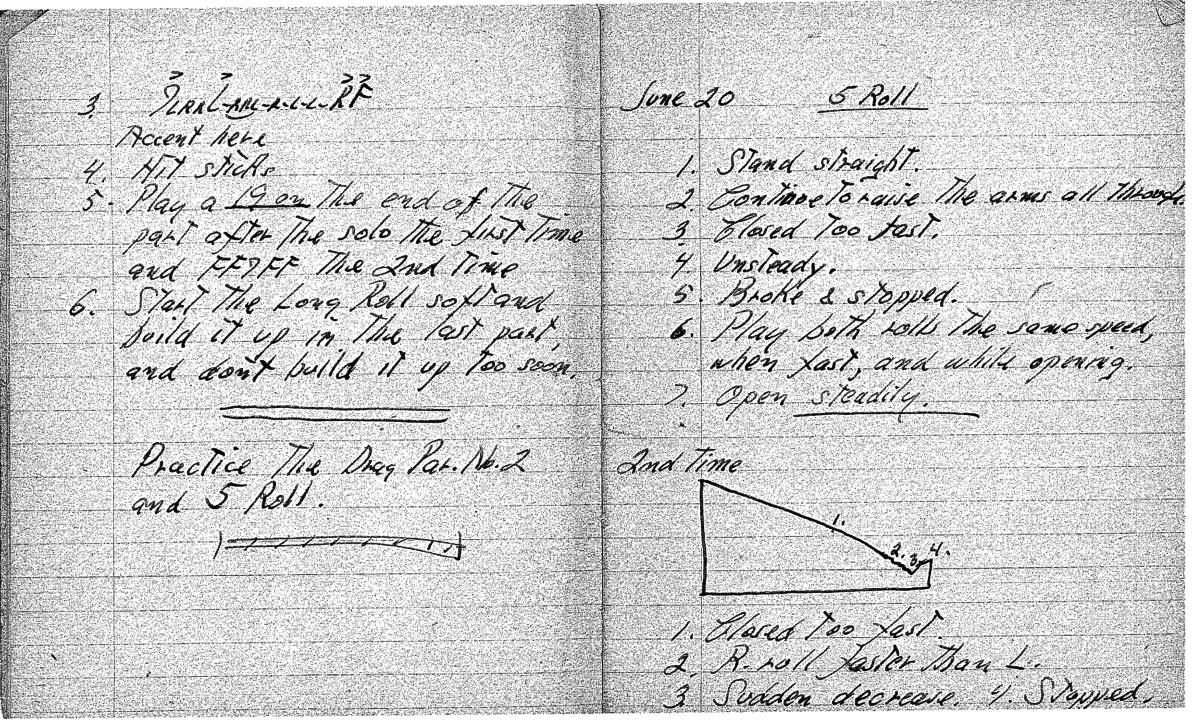 3.
Accent here
4. Hit sticks
5. Play a The end of The
part after The solo The first Time
and The 2nd Time
6. Start The Long Roll soft and
build it up in The last part,
and don't build it up Too soon.
Practice The Drag Par. No. 2
and 5 Roll.
June 20 5 Roll
1. Stand straight.
2. Continue To raise The arms all Through.
3. Closed Too fast.
4. Unsteady.
5. Broke & stopped.
6. Play both rolls The same speed,
when fast, and while opening.
7. Open steadily.
2nd Time
1.
2. 3. 4.
1. Closed Too fast.
2. R. roll faster Than L.
3 Sudden decrease. 4. Stopped.